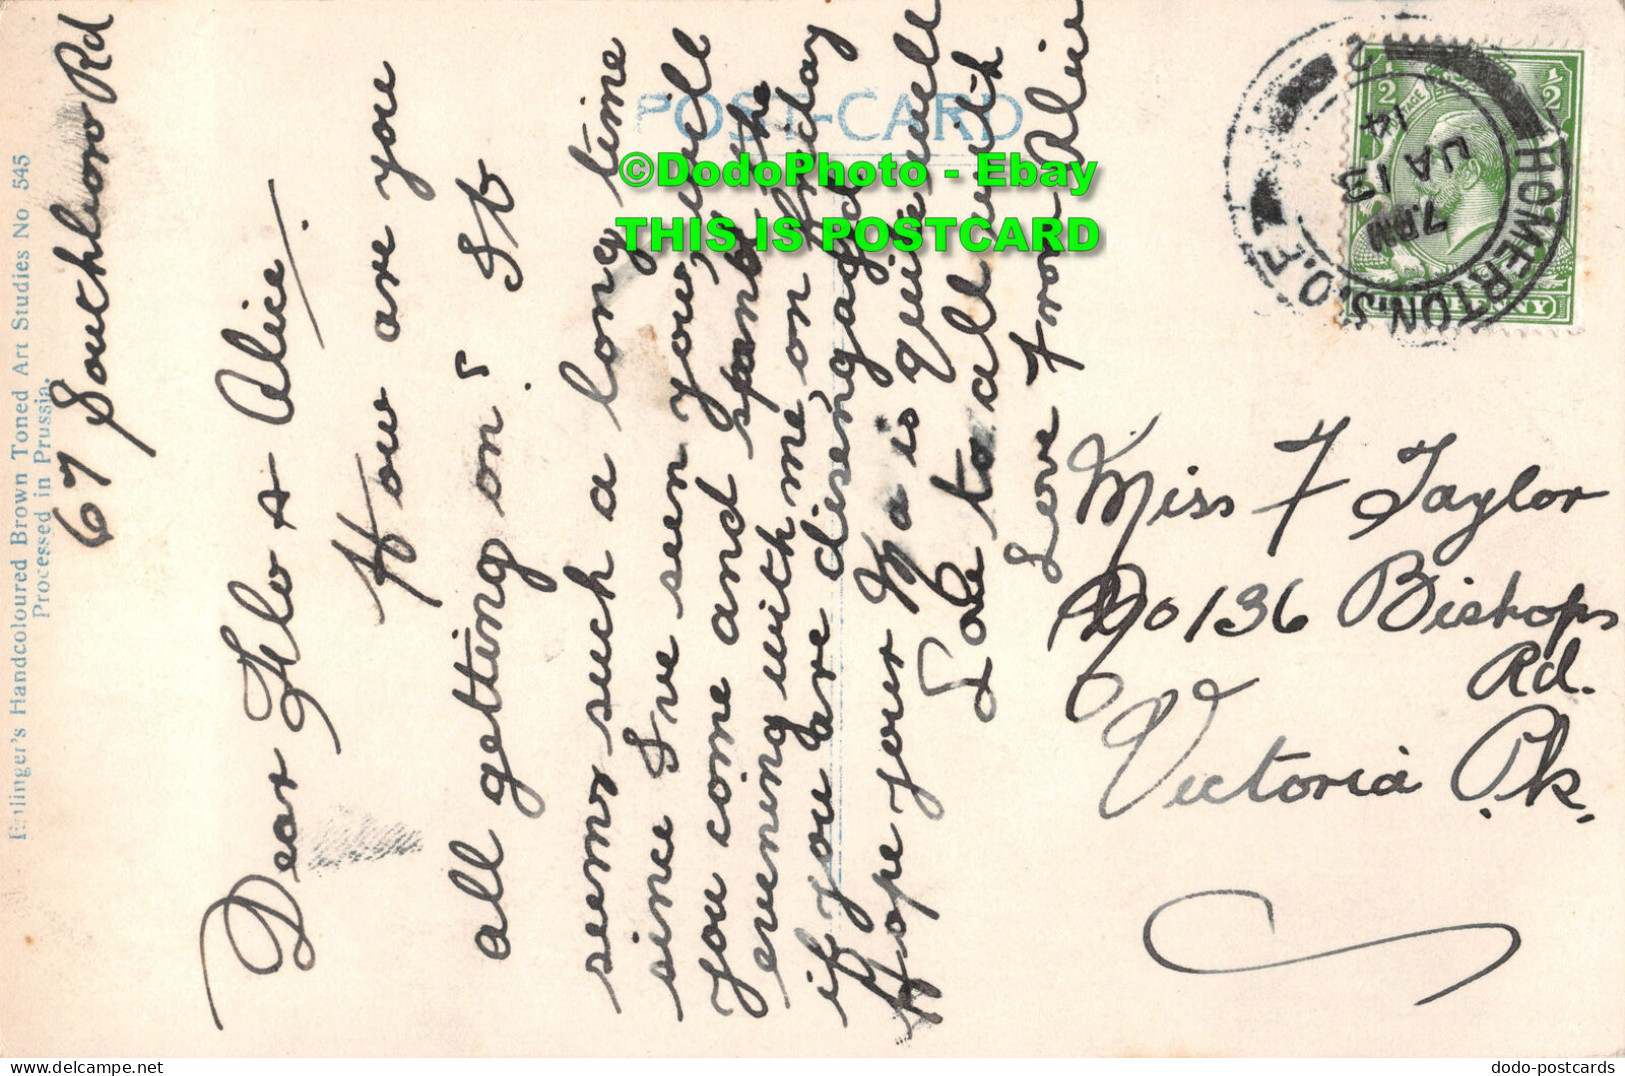 Ettlinger's Handcoloured Brown Toned Art Studies No 545
Processed in Prussia.
67 Southboro Rd
Dear Flo & Alice.
How are you
all getting on? It
seems such a long time
since I've seen you, will
you come and spend the
evening with me on Friday
if you are disengaged.
Hope your Ma is quite well
Love to all with
Love From Alice
POST-CARD
©DodoPhoto - Ebay
THIS IS POSTCARD
HOMERTON S.O.
7.PM
JA 13
14
1/2
1/2
Miss F Taylor
136 Bishops
Rd.
Victoria Pk.
dodo-postcards